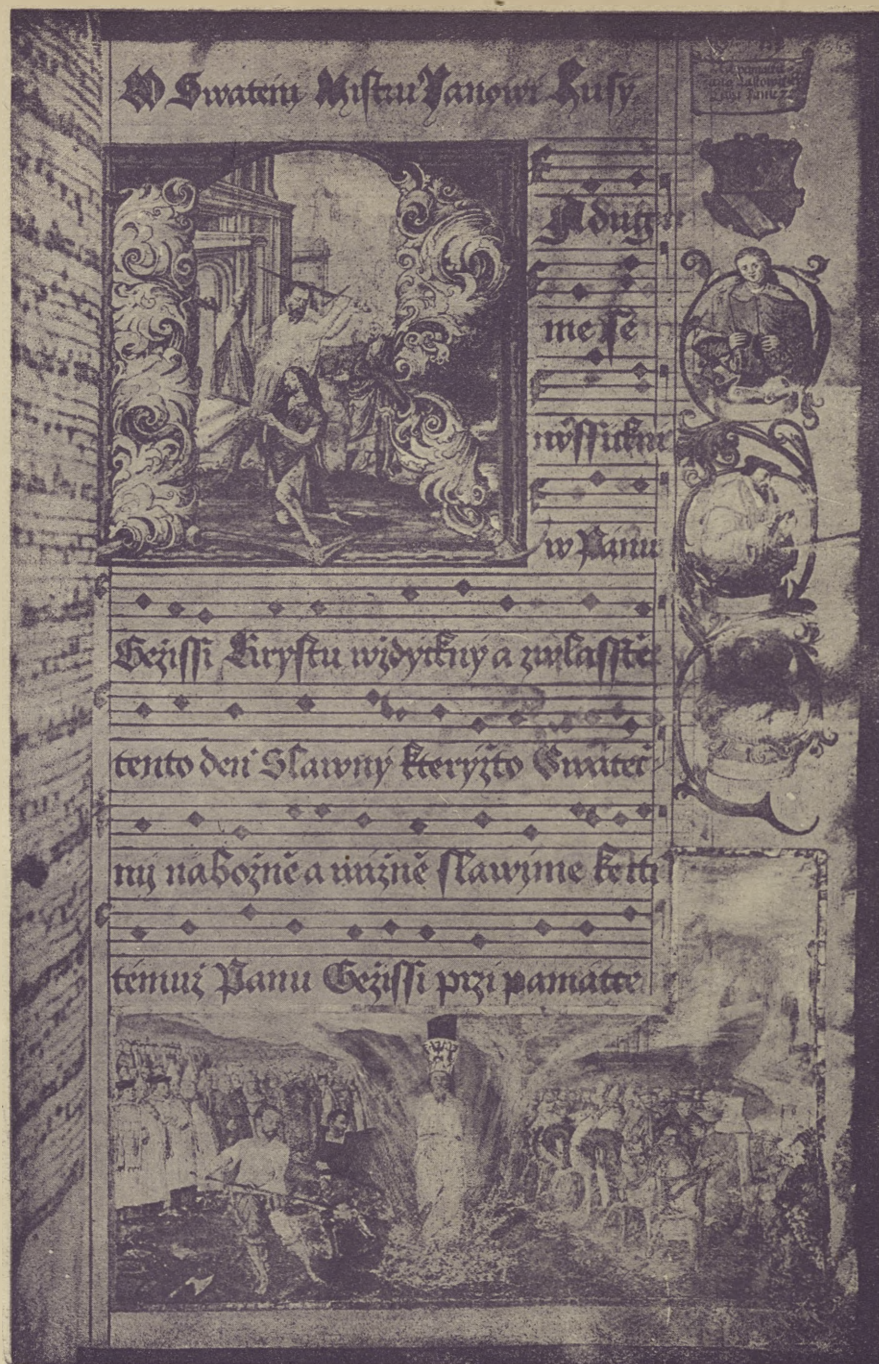 O Swatem Mistru Janowi Husy.
Radugm
me se
wssickni
w Panu
Gežissi Krystu wždyckny a zwlasstě
tento deň Slawny kteryžto Swateč
ny nábožně a wážně slawyme ke cti
témuž Panu Gežissi przi pamatce